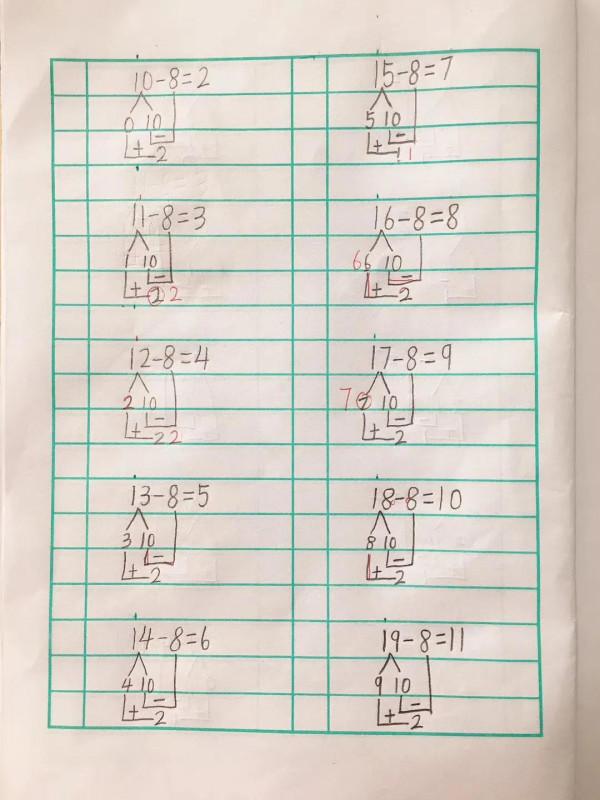 10-8=2
0 10
-
+ 2
11-8=3
1 10
-
+ 2 2
12-8=4
2 10
-
+ 2 2
13-8=5
3 10
-
+ 2
14-8=6
4 10
-
+ 2
15-8=7
5 10
-
+
16-8=8
6 6 10
-
+ 2
17-8=9
7 7 10
-
+ 2
18-8=10
8 10
-
+ 2
19-8=11
9 10
-
+ 2